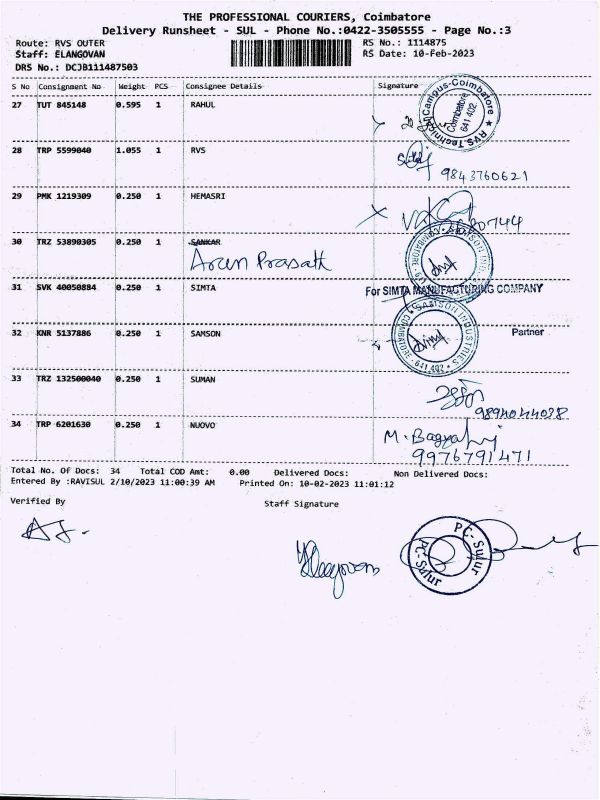 THE PROFESSIONAL COURIERS, Coimbatore
Delivery Runsheet - SUL - Phone No.:0422-3505555 - Page No.:3
Route: RVS OUTER RS No.: 1114875
Staff: ELANGOVAN RS Date: 10-Feb-2023
DRS No.: DCJB111487503
S No Consignment No Weight PCS Consignee Details Signature
27 TUT 845148 0.595 1 RAHUL
RVS Technical Campus-Coimbatore
Coimbatore
641 402
28 TRP 5599040 1.055 1 RVS
9843760621
29 PMK 1219309 0.250 1 HEMASRI
30 TRZ 53890305 0.250 1 SANKAR
Arun Prasath
31 SVK 40050884 0.250 1 SIMTA
For SIMTA MANUFACTURING COMPANY
32 KNR 5137886 0.250 1 SAMSON
SAMSON INDUSTRIES
COIMBATORE - 641 402
Partner
33 TRZ 132500040 0.250 1 SUMAN
9894044028
34 TRP 6201630 0.250 1 NUOVO
M. Bagya
9976791471
Total No. Of Docs: 34 Total COD Amt: 0.00 Delivered Docs: Non Delivered Docs:
Entered By :RAVISUL 2/10/2023 11:00:39 AM Printed On: 10-02-2023 11:01:12
Verified By
Staff Signature
PC- Sulur
PC- Sulur